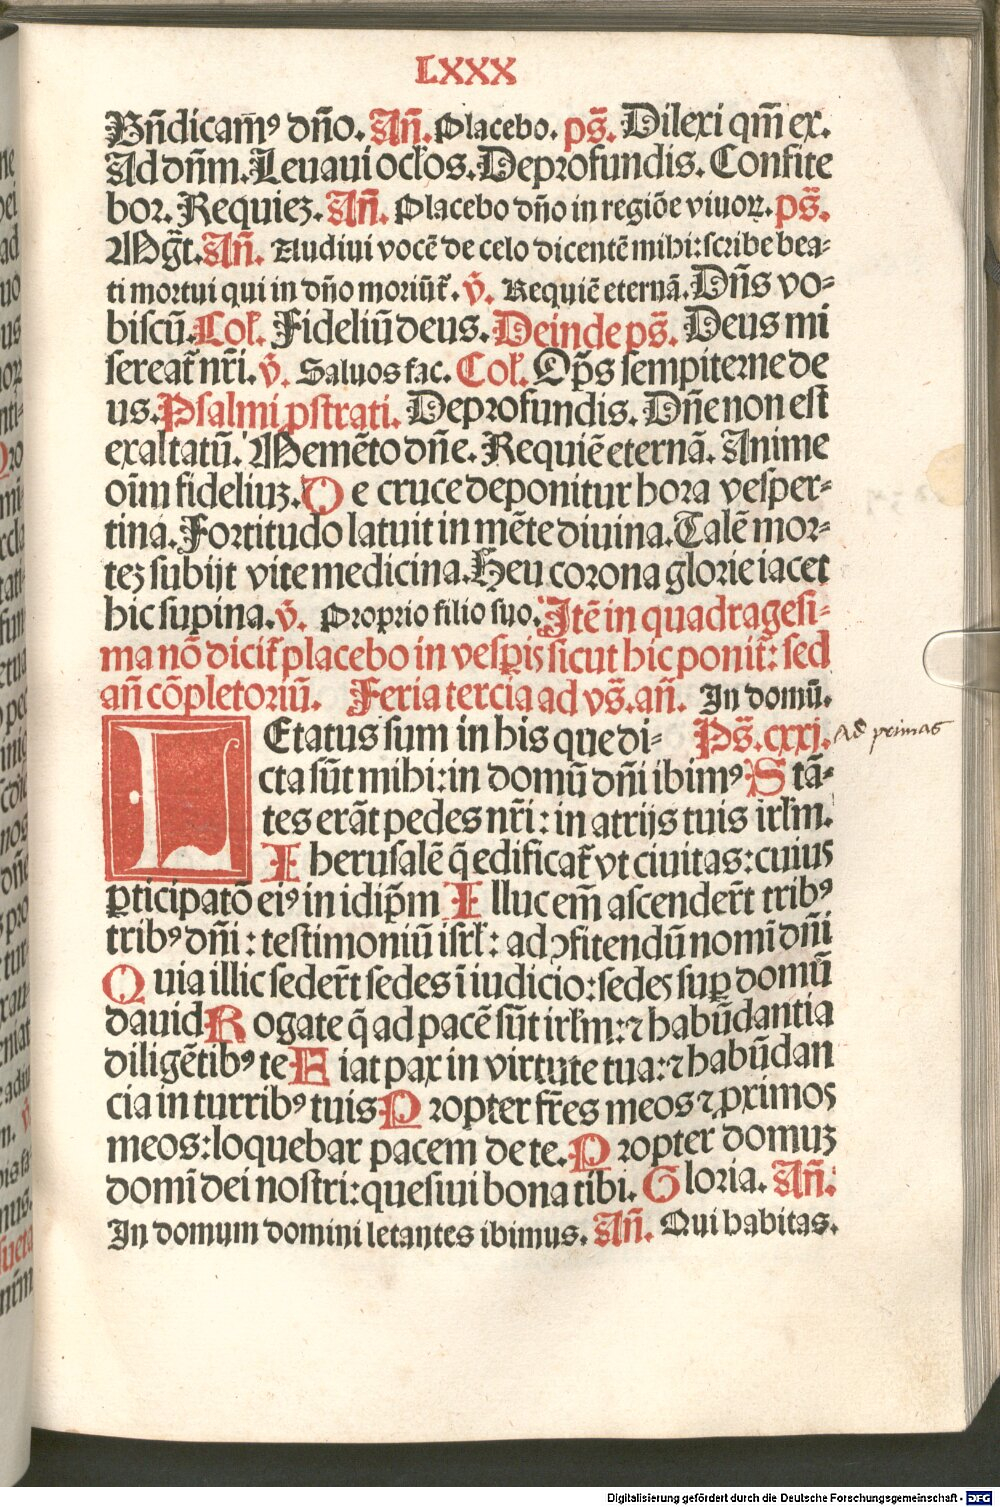 LXXX
Bn̄dicam̄ꝰ dn̄o. An̄. Placebo. ps̄. Dilexi qm̄ ex.
Ad dn̄m. Leuaui oclos. De profundis. Confite
bor. Requiez. An̄. Placebo dn̄o in regiōe viuoꝝ. ps̄.
Mḡt. An̄. Audiui vocē de celo dicentē mihi: scribe bea⸗
ti mortui qui in dn̄o moriūt̄. v̄. Requiē eternā. Dn̄s vo⸗
biscū. Col̄. Fideliū deus. Deinde ps̄. Deus mi
sereat̄ nr̄i. v̄. Saluos fac. Col̄. Op̄s sempiterne de
us. Psalmi ꝓstrati. De profundis. Dn̄e non est
exaltatū. Memēto dn̄e. Requiē eternā. Anime
oīm fideliuꝫ. De cruce deponitur hora vesper⸗
tina. Fortitudo latuit in mēte diuina. Talē mor⸗
teꝫ subijt vite medicina. Heu corona glorie iacet
hic supina. v̄. Proprio filio suo. Itē in quadragesi⸗
ma nō dicit̄ placebo in vesp̄is sicut hic ponit̄: sed
an̄ cōpletoriū. Feria tercia ad vs̄. an̄. In domū.
LEtatus sum in his que di⸗ Ps̄. cxxj. Ad primas
cta sūt mihi: in domū dn̄i ibimꝰ Stā⸗
tes erāt pedes nr̄i: in atrijs tuis irl̄m.
Iherusalē q̄ edificat̄ vt ciuitas: cuius
ꝑticipatō eiꝰ in idip̄m Illuc em̄ ascender̄t tribꝰ
tribꝰ dn̄i: testimoniū isrl̄: ad ꝯfitendū nomī dn̄i
Quia illic seder̄t sedes ī iudicio: sedes suꝑ domū
dauid Rogate q̄ ad pacē sūt irl̄m: ⁊ habūdantia
diligētibꝰ te Fiat pax in virtute tua: ⁊ habūdan
cia in turribꝰ tuis Propter fr̄es meos ⁊ ꝓximos
meos: loquebar pacem de te. Propter domuꝫ
domī dei nostri: quesiui bona tibi. Gloria. An̄.
In domum domini letantes ibimus. An̄. Qui habitas.
Digitalisierung gefördert durch die Deutsche Forschungsgemeinschaft - DFG